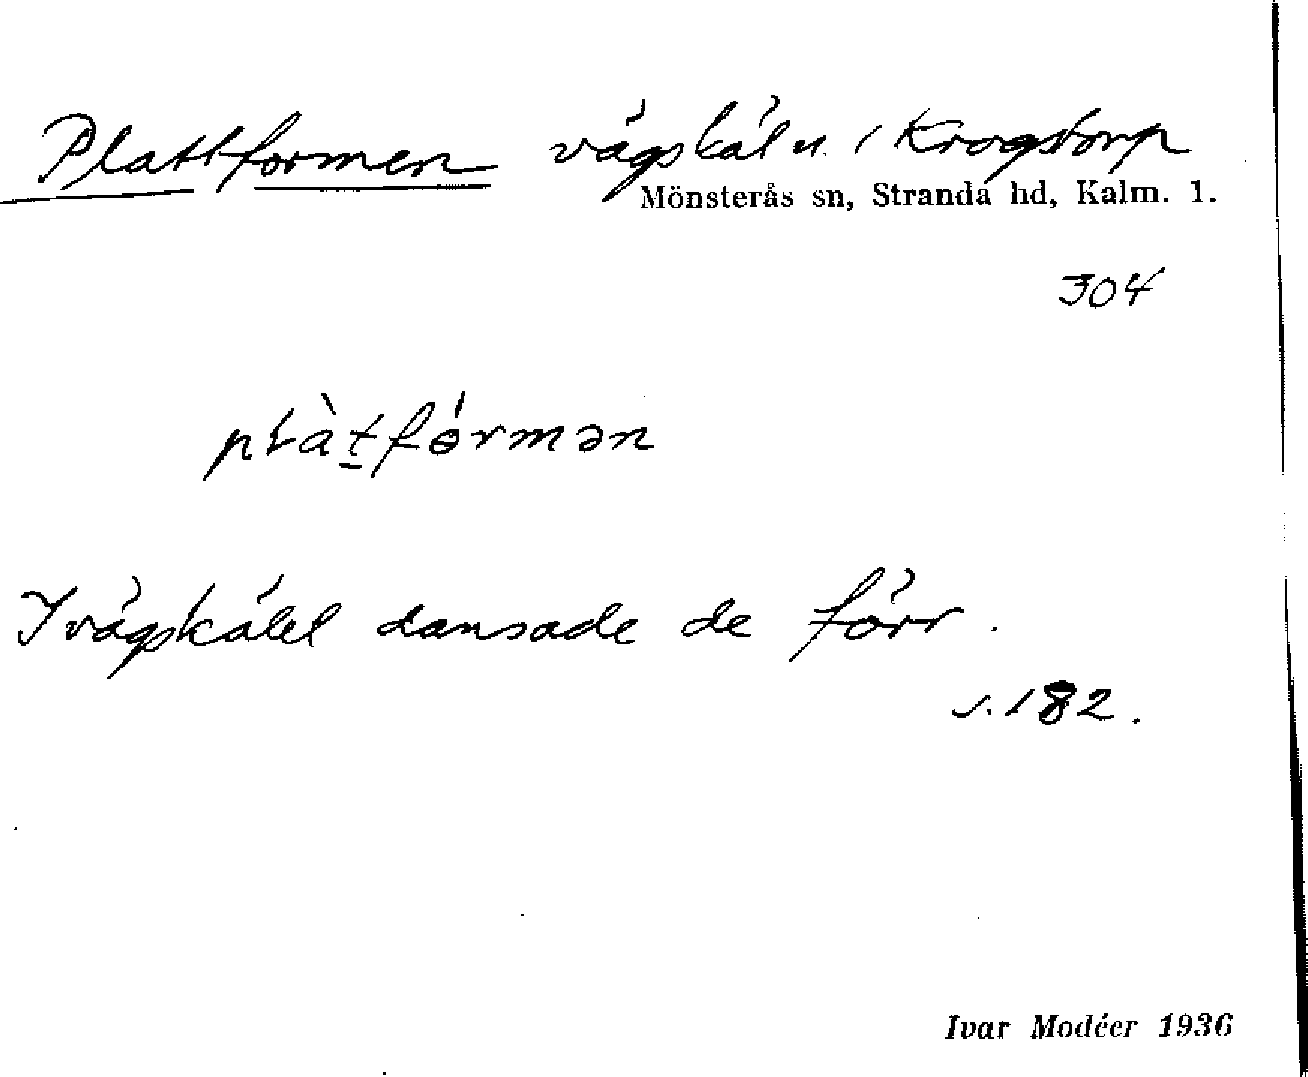 Plattformen vägskäl u. Krogstorp
Mönsterås sn, Stranda hd, Kalm. l.
304
plàt̠fórmən
I vägskälet dansade de förr.
s. 182.
Ivar Modéer 1936